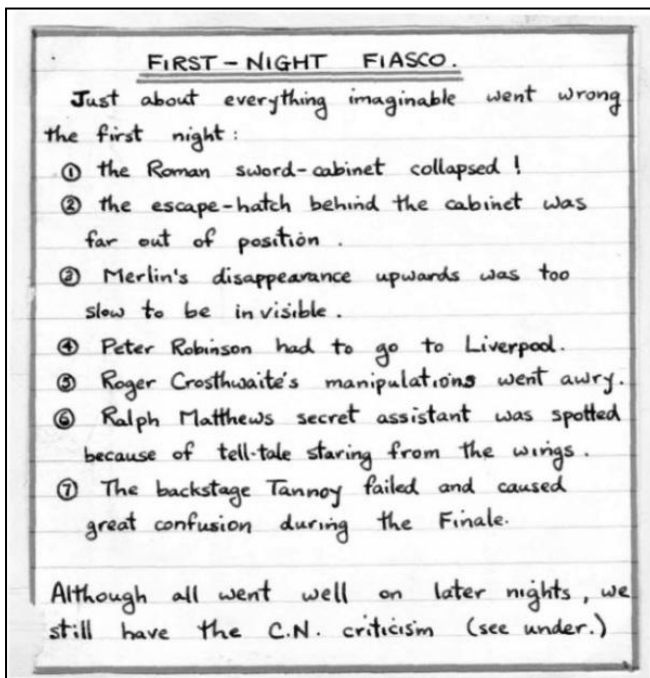 FIRST - NIGHT FIASCO.
Just about everything imaginable went wrong
the first night :
① the Roman sword-cabinet collapsed !
② the escape-hatch behind the cabinet was
far out of position .
③ Merlin's disappearance upwards was too
slow to be invisible .
④ Peter Robinson had to go to Liverpool.
⑤ Roger Crosthwaite's manipulations went awry.
⑥ Ralph Matthews secret assistant was spotted
because of tell-tale staring from the wings .
⑦ The backstage Tannoy failed and caused
great confusion during the Finale.
Although all went well on later nights , we
still have the C.N. criticism (see under.)